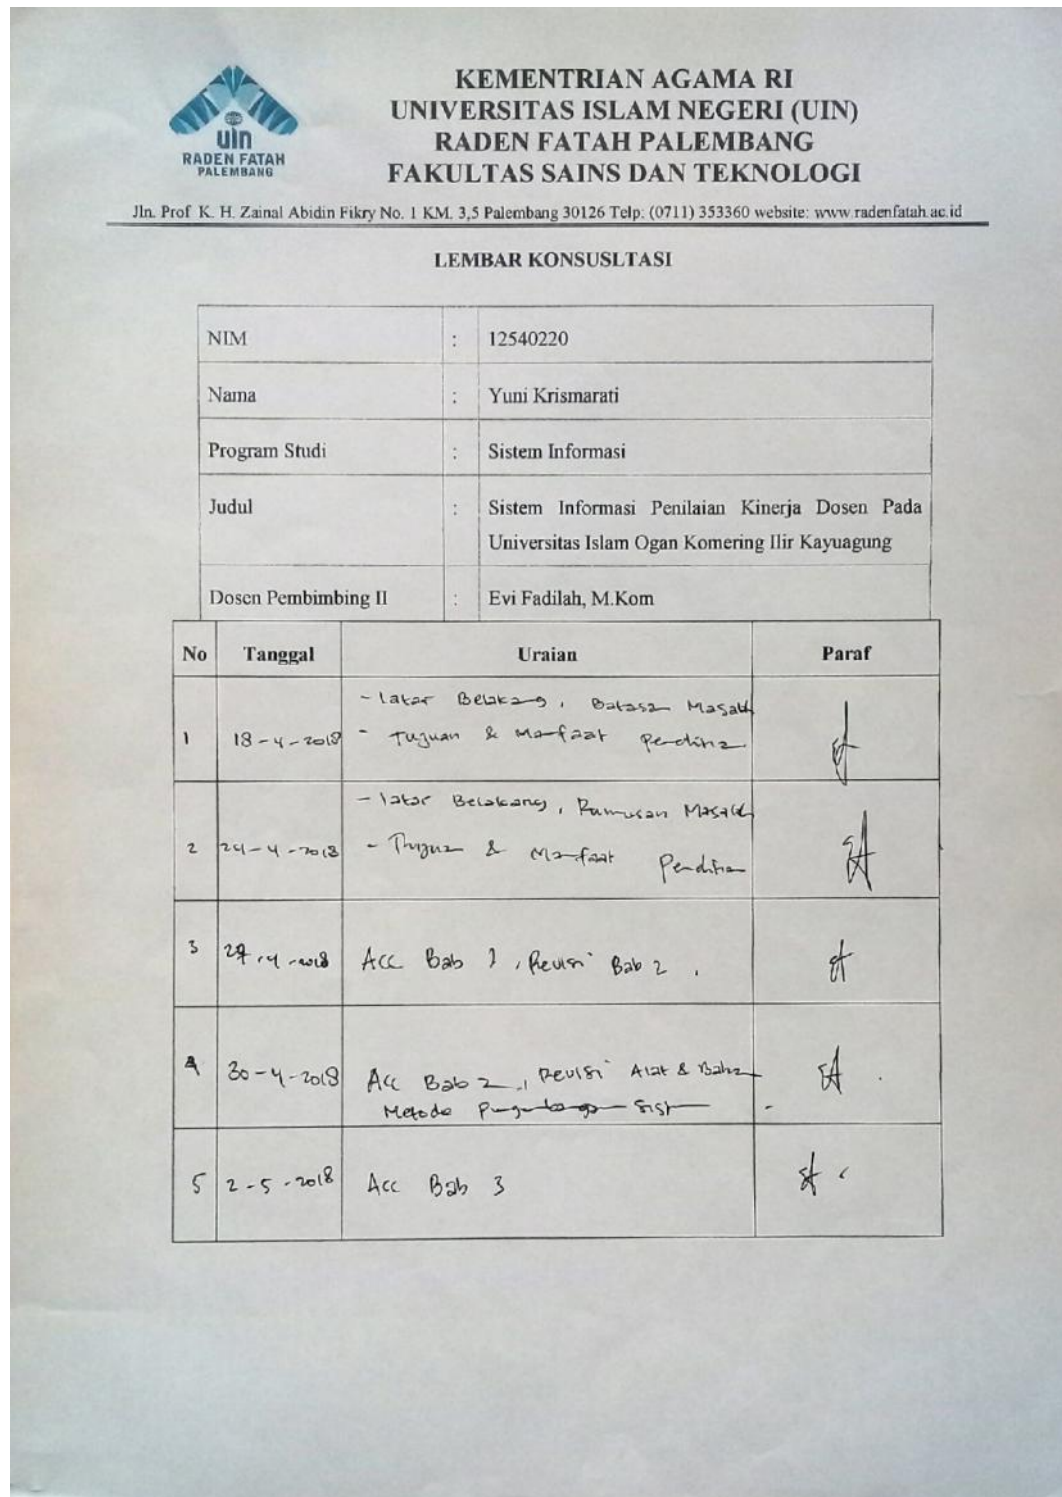 uin
RADEN FATAH
PALEMBANG
KEMENTRIAN AGAMA RI
UNIVERSITAS ISLAM NEGERI (UIN)
RADEN FATAH PALEMBANG
FAKULTAS SAINS DAN TEKNOLOGI
Jln. Prof K. H. Zainal Abidin Fikry No. 1 KM. 3,5 Palembang 30126 Telp: (0711) 353360 website: www.radenfatah.ac.id
LEMBAR KONSUSLTASI
NIM : 12540220
Nama : Yuni Krismarati
Program Studi : Sistem Informasi
Judul : Sistem Informasi Penilaian Kinerja Dosen Pada
Universitas Islam Ogan Komering Ilir Kayuagung
Dosen Pembimbing II : Evi Fadilah, M.Kom
No Tanggal Uraian Paraf
- Latar Belakang, Batasan Masalah
1 18-4-2018 - Tujuan & Manfaat
- Latar Belakang, Rumusan Masalah
2 24-4-2018 - Tujuan & Manfaat
3 27-4-2018 Acc Bab 1, Revisi Bab 2.
4 30-4-2018 Acc Bab 2, Revisi Alat & Bahan
Metode
5 2-5-2018 Acc Bab 3